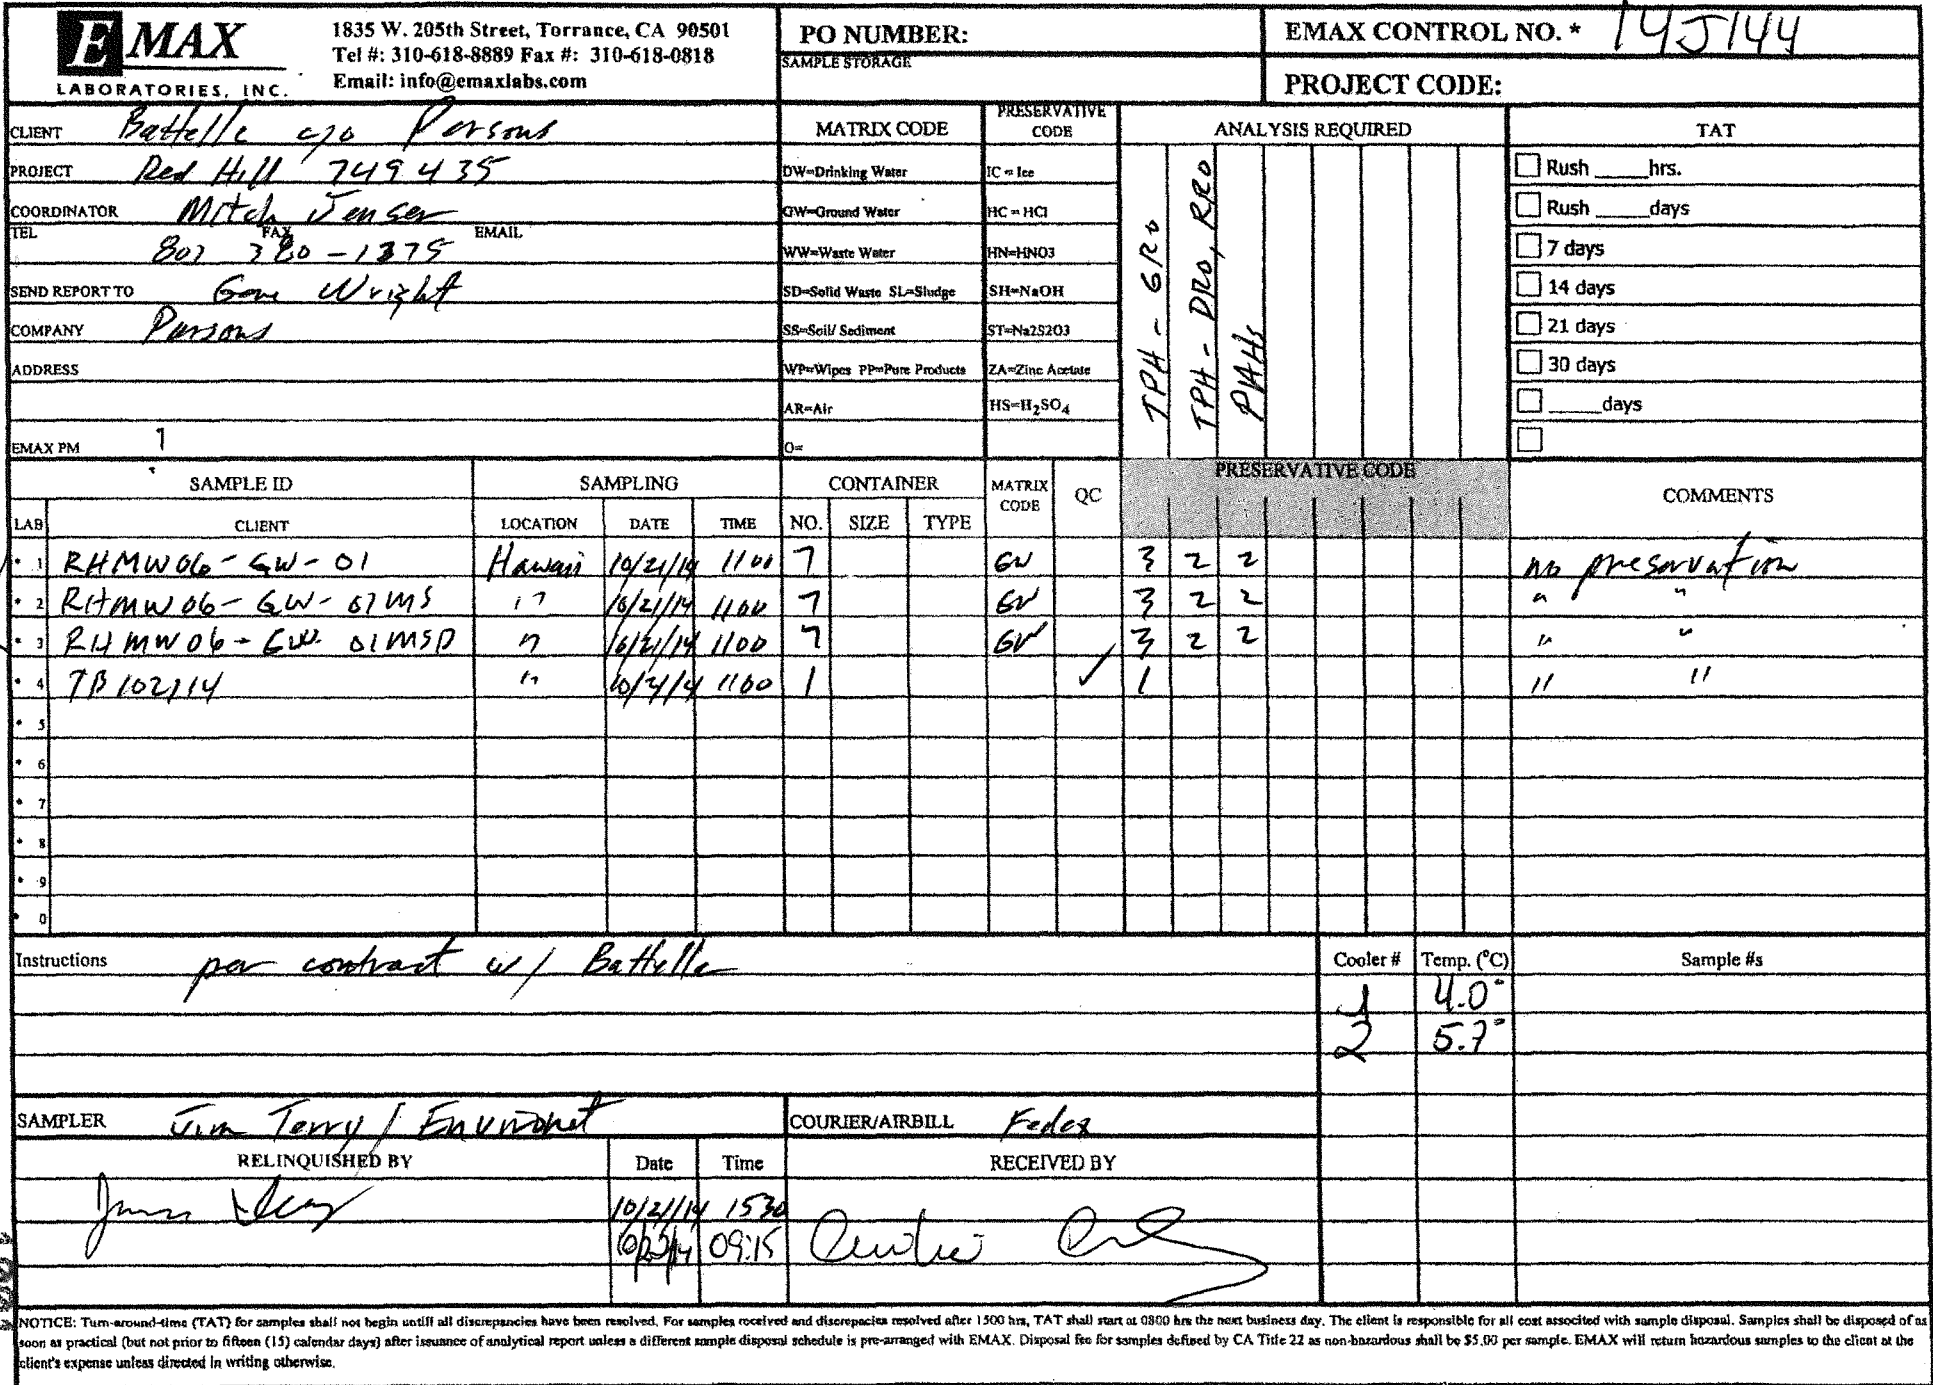 EMAX
LABORATORIES, INC.
1835 W. 205th Street, Torrance, CA 90501
Tel #: 310-618-8889 Fax #: 310-618-0818
Email: info@emaxlabs.com
PO NUMBER:
SAMPLE STORAGE
EMAX CONTROL NO. * 14J144
PROJECT CODE:
CLIENT Battelle c/o Parsons
PROJECT Red Hill 749435
COORDINATOR Mitch Jensen
TEL FAX EMAIL
801 380-1375
SEND REPORT TO Gene Wright
COMPANY Parsons
ADDRESS
EMAX PM
MATRIX CODE
DW=Drinking Water
GW=Ground Water
WW=Waste Water
SD=Solid Waste SL=Sludge
SS=Soil/ Sediment
WP=Wipes PP=Pure Products
AR=Air
O=
PRESERVATIVE CODE
IC = Ice
HC = HCl
HN=HNO3
SH=NaOH
ST=Na2S2O3
ZA=Zinc Acetate
HS=H2SO4
ANALYSIS REQUIRED
TPH - GRO
TPH - DRO, RRO
PAHs
TAT
Rush ____hrs.
Rush ____days
7 days
14 days
21 days
30 days
____days
SAMPLE ID SAMPLING CONTAINER MATRIX CODE QC PRESERVATIVE CODE COMMENTS
LAB CLIENT LOCATION DATE TIME NO. SIZE TYPE
* 1 RHMW06-GW-01 Hawaii 10/21/14 1100 7 GW 3 2 2 no preservation
* 2 RHMW06-GW-01MS " 10/21/14 1100 7 GW 3 2 2 " "
* 3 RHMW06-GW-01MSD " 10/21/14 1100 7 GW 3 2 2 " "
* 4 TB102114 " 10/21/14 1100 1 ✓ 1 " "
* 5
* 6
* 7
* 8
* 9
* 0
Instructions per contract w/ Battelle
Cooler # Temp. (°C) Sample #s
1 4.0°
2 5.7°
SAMPLER Jim Terry / Environet
COURIER/AIRBILL Fedex
RELINQUISHED BY Date Time RECEIVED BY
10/21/14 1530
09:15
NOTICE: Turn-around-time (TAT) for samples shall not begin untill all discrepancies have been resolved. For samples received and discrepacies resolved after 1500 hrs, TAT shall start at 0800 hrs the next business day. The client is responsible for all cost associted with sample disposal. Samples shall be disposed of as
soon as practical (but not prior to fifteen (15) calendar days) after issuance of analytical report unless a different sample disposal schedule is pre-arranged with EMAX. Disposal fee for samples defined by CA Title 22 as non-hazardous shall be $5.00 per sample. EMAX will return hazardous samples to the client at the
client's expense unless directed in writing otherwise.